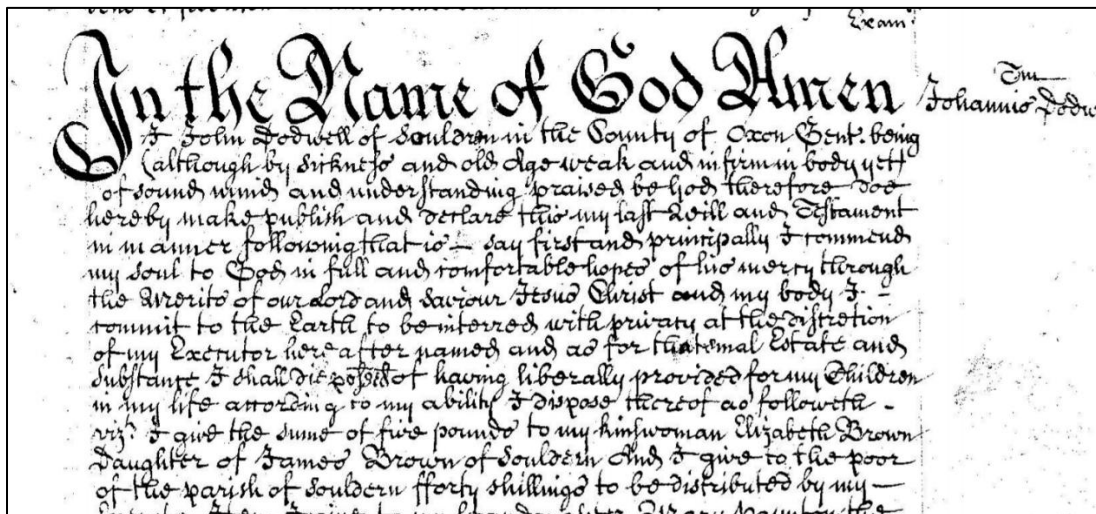 Exam
In the Name of God Amen
Tm
Johannis Dodw
I John Dodwell of Souldern in the County of Oxon Gent. being
(although by Sickness and old Age weak and infirm in body yet)
of sound mind and understanding praised be God therefore doe
hereby make publish and declare this my last Will and Testament
in manner following that is — say first and principally I commend
my soul to God in full and comfortable hopes of his mercy through
the Merits of our Lord and Saviour Jesus Christ and my body I –
commit to the Earth to be interred with privacy at the discretion
of my Executor here after named and as for that small Estate and
substance I shall die possessed of having liberally provided for my Children
in my life according to my ability I dispose thereof as followeth –
vizt. I give the sume of five pounds to my kinswoman Elizabeth Brown
Daughter of James Brown of Souldern And I give to the poor
of the parish of Souldern fforty shillings to be distributed by my –